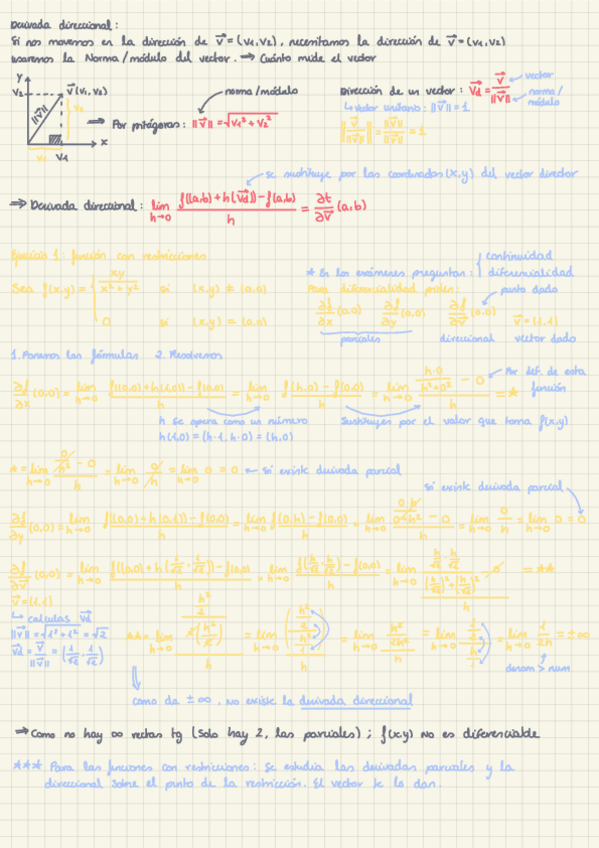 Derivada direccional:
Si nos movemos en la dirección de v⃗ = (v₁,v₂), necesitamos la dirección de v⃗ = (v₁,v₂)
usaremos la Norma/módulo del vector. ⟹ Cuánto mide el vector
y
v₂
v⃗ (v₁,v₂)
||v⃗||
v₂
v₁
v₁
x
norma/módulo
⟹ Por pitágoras: ||v⃗|| = √(v₁² + v₂²)
Dirección de un vector: v⃗d = v⃗ / ||v⃗||
vector
norma/módulo
↳ vector unitario: ||v⃗|| = 1
||v⃗/||v⃗|| || = ||v⃗||/||v⃗|| = 1
se sustituye por las coordenadas (x,y) del vector director
⟹ Derivada direccional: lim h→0 (f((a,b) + h(v⃗d)) - f(a,b)) / h = ∂f/∂v⃗ (a,b)
Ejercicio 1: función con restricciones
Sea f(x,y) = { xy/(x²+y²) si (x,y) ≠ (0,0)
0 si (x,y) = (0,0)
* En los exámenes preguntan: { continuidad
diferencialidad
Para diferencialidad piden:
punto dado
∂f/∂x (0,0) ∂f/∂y (0,0) ∂f/∂v⃗ (0,0) v⃗ = (1,1)
parciales direccional vector dado
1. Ponemos las fórmulas 2. Resolvemos
∂f/∂x (0,0) = lim h→0 (f((0,0) + h(1,0)) - f(0,0)) / h = lim h→0 (f(h,0) - f(0,0)) / h = lim h→0 (h·0/(h²+0²) - 0) / h = *
Por def. de esta función
h se opera como un número
h(1,0) = (h·1, h·0) = (h,0)
Sustituyes por el valor que toma f(x,y)
* = lim h→0 (0/h² - 0) / h = lim h→0 0/h = lim h→0 0 = 0 ← Sí existe derivada parcial
Sí existe derivada parcial
∂f/∂y (0,0) = lim h→0 (f((0,0) + h(0,1)) - f(0,0)) / h = lim h→0 (f(0,h) - f(0,0)) / h = lim h→0 (0·h/(0²+h²) - 0) / h = lim h→0 0/h = lim h→0 0 = 0
∂f/∂v⃗ (0,0) = lim h→0 (f((0,0) + h(1/√2, 1/√2)) - f(0,0)) / h = lim h→0 (f(h/√2, h/√2) - f(0,0)) / h = lim h→0 (h/√2 · h/√2 / ((h/√2)² + (h/√2)²) - 0) / h = **
v⃗ = (1,1)
↳ calculas v⃗d
||v⃗|| = √(1²+1²) = √2
v⃗d = v⃗/||v⃗|| = (1/√2, 1/√2)
** = lim h→0 (h²/2 / (2(h²/2))) / h = lim h→0 (h²/2 / (h²/1)) / h = lim h→0 (h²/2h²) / h = lim h→0 (1/2) / (h/1) = lim h→0 1/2h = ±∞
denom > num
Como da ±∞, no existe la derivada direccional
⟹ Como no hay ∞ rectas tg (Solo hay 2, las parciales); f(x,y) no es diferenciable
*** Para las funciones con restricciones: Se estudia las derivadas parciales y la
direccional sobre el punto de la restricción. El vector te lo dan.